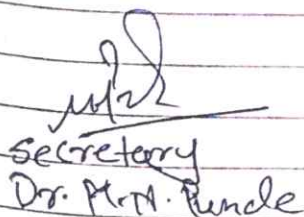 secretary
Dr. M.A. Punde